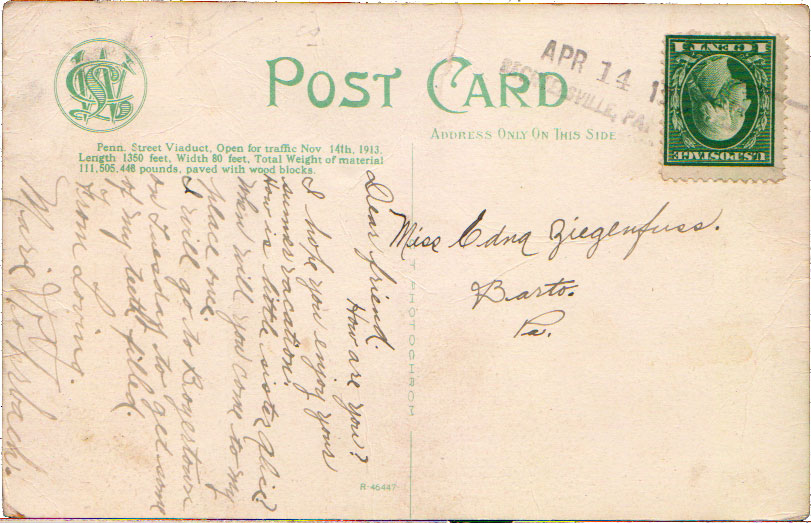 POST CARD
ADDRESS ONLY ON THIS SIDE
APR 14 1
BECHTELSVILLE, PA
1 CENT 1
U.S. POSTAGE
Penn. Street Viaduct, Open for traffic Nov 14th, 1913.
Length 1350 feet, Width 80 feet, Total Weight of material
111,505,448 pounds, paved with wood blocks.
Dear friend.
How are you?
I hope you enjoy your
sumer vacation.
How is little sister Alice?
When will you come to my
place me.
I will go to Boyertown
on Tuesday to get some
of my teeth filled.
By
From Loving.
Marie
Miss Edna Ziegenfuss.
Barto.
Pa.
R-46447